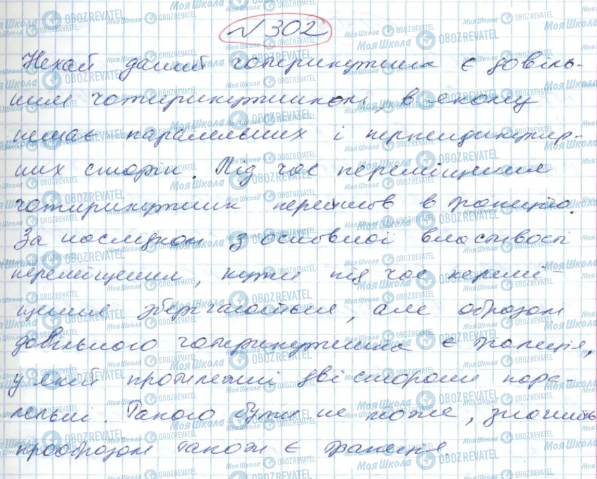 № 302
Нехай даний чотирикутник є довіль-
ним чотирикутником, в якому
немає паралельних і перпендикуляр-
них сторін. Під час переміщення
чотирикутник перейшов в трапецію.
За наслідком з основної властивості
переміщення, кути під час перемі
щення зберігаються, але образом
довільного чотирикутника є трапеція,
у якої протилежні дві сторони пара-
лельні. Такого бути не може, значить
прообразом також є трапеція